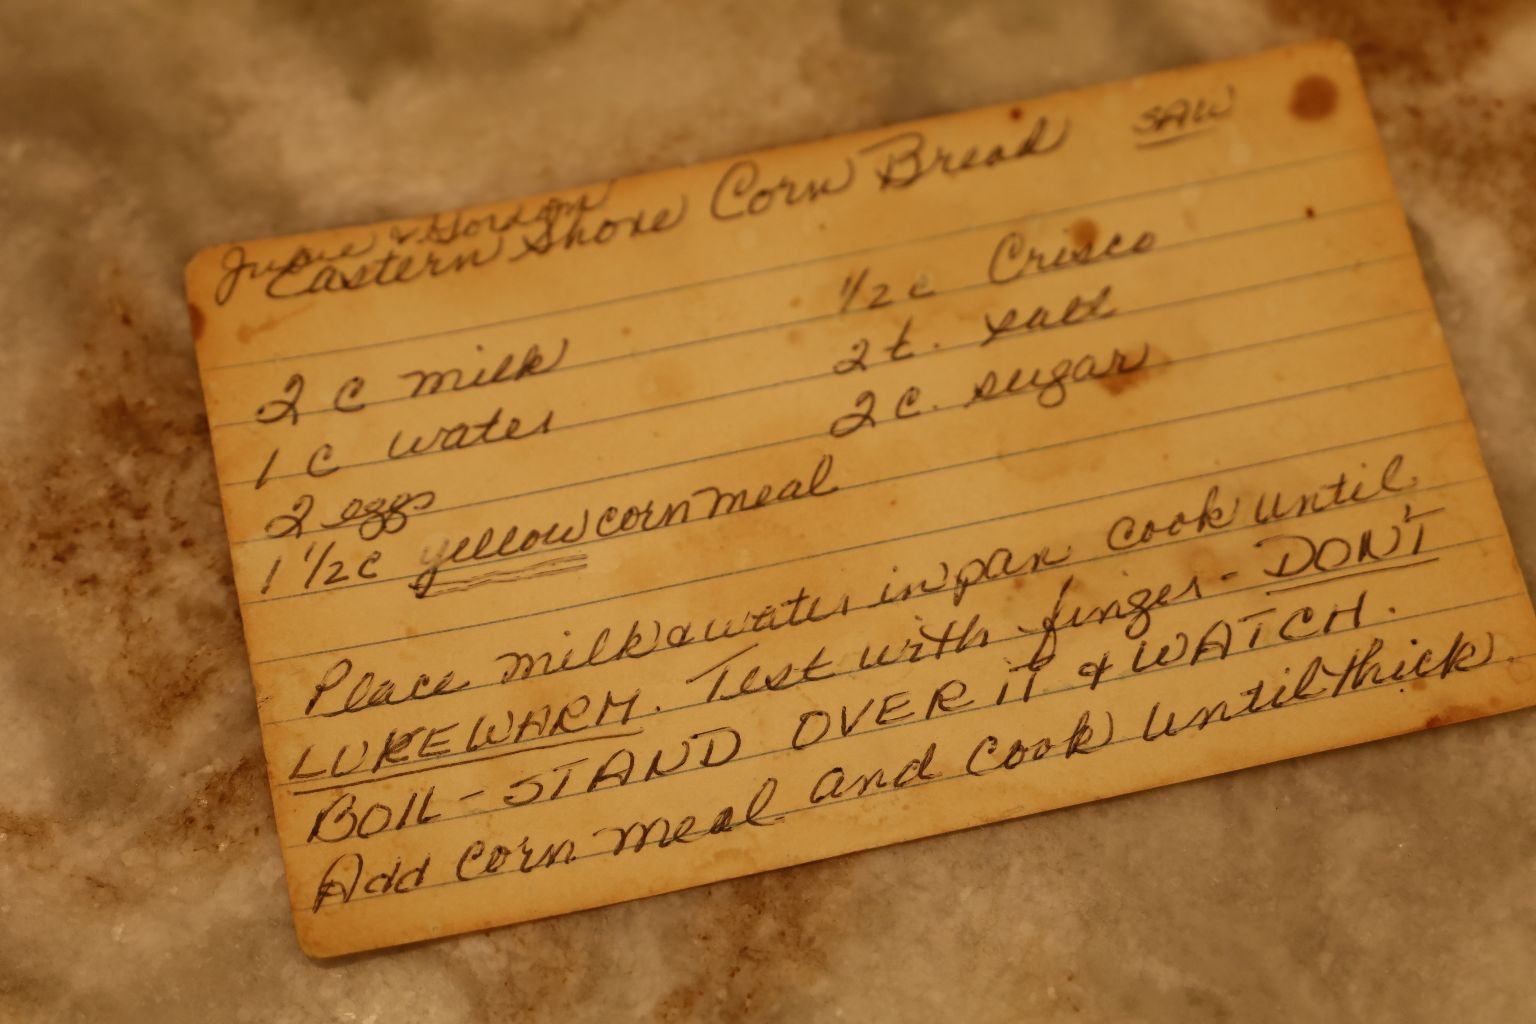 & Gordon
Eastern Shore Corn Bread SAW
2 C milk 1/2 c Crisco
1 C water 2 t. salt
2 eggs 2 c. sugar
1 1/2 c yellow corn meal
Place milk & water in pan cook until
LUKEWARM. Test with finger - DON'T
BOIL - STAND OVER IT & WATCH.
Add corn meal and cook until thick